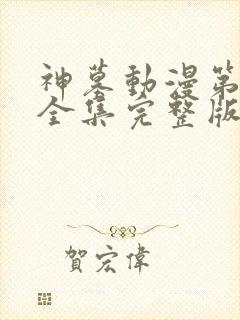 神墓動漫第
全集完整版
賀宏偉